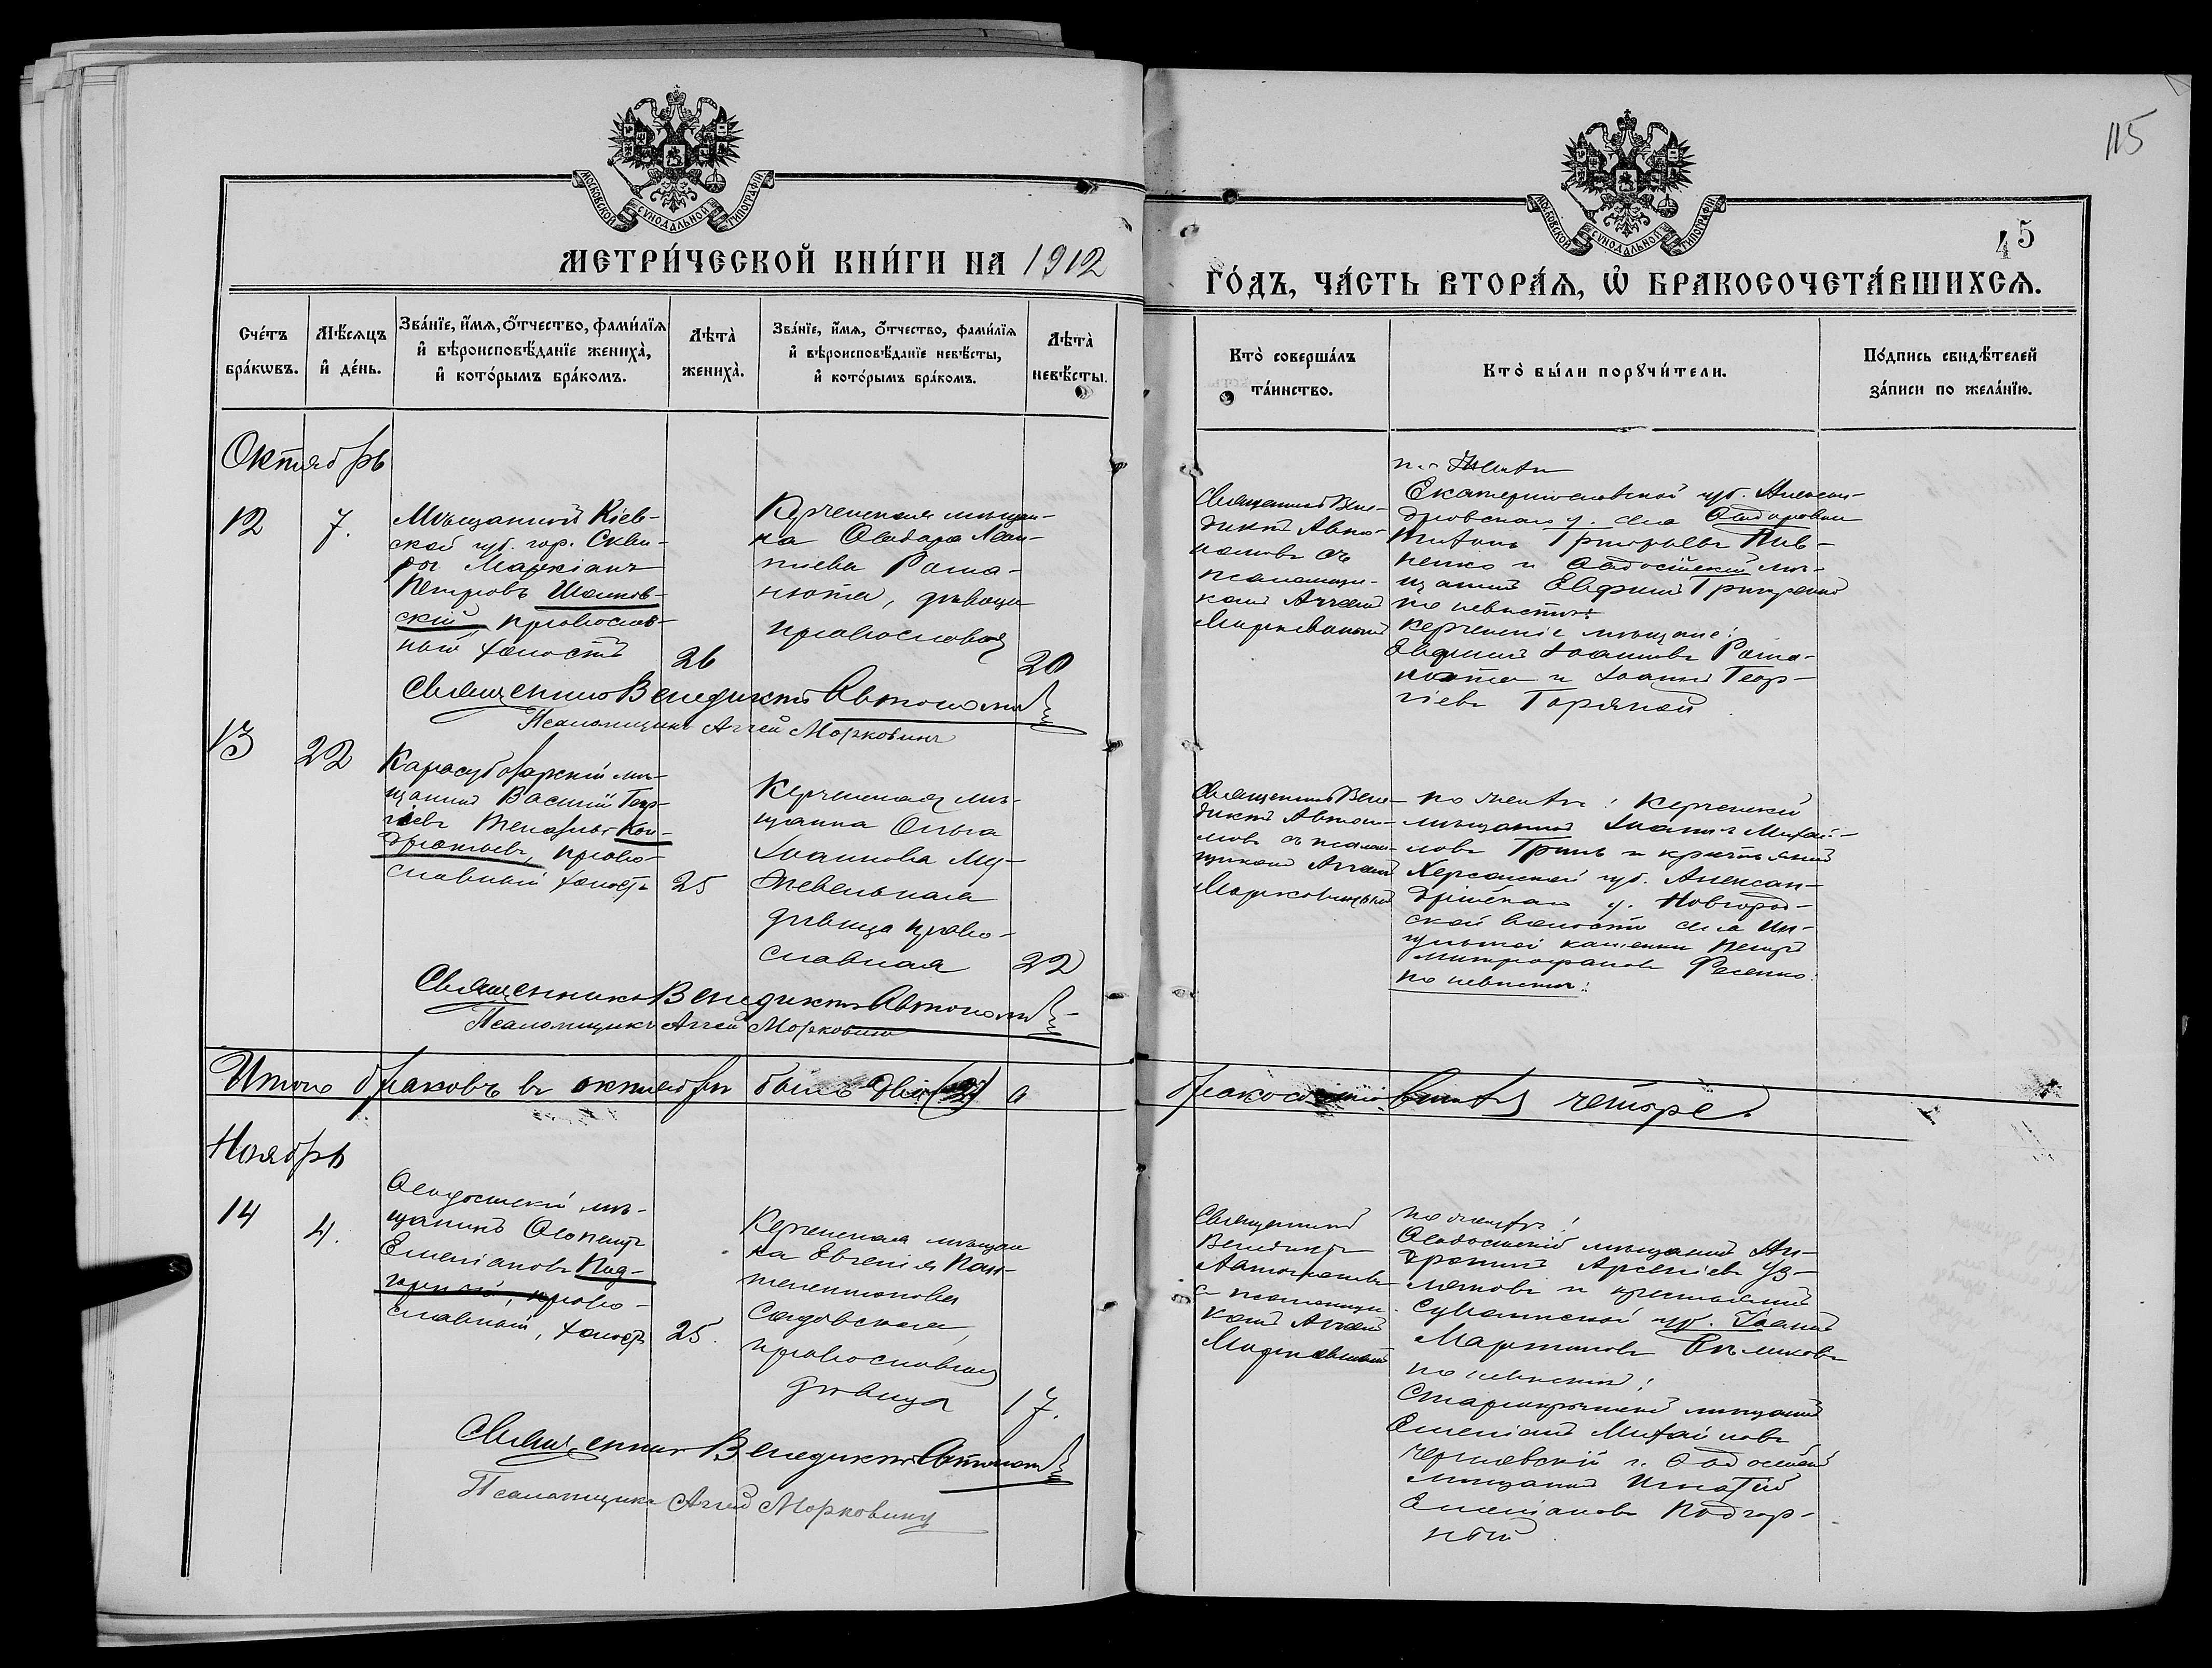 115
МОСКОВСКОЙ СѴНОДАЛЬНОЙ ТИПОГРАФІИ
МОСКОВСКОЙ СѴНОДАЛЬНОЙ ТИПОГРАФІИ
МЕТРИ́ЧЕСКОЙ КНИ́ГИ НА 1912
45
ГО́ДЪ, ЧА́СТЬ ВТОРА́Ѧ, Ѽ БРАКОСОЧЕТА́ВШИХСѦ.
Сче́тъ бра́кѡвъ.
Мѣ́сѧцъ и҆ де́нь.
Зва́нїе, и҆́мѧ, ѻ҆́тчество, фами́лїѧ
и҆ вѣроисповѣ́данїе жениха̀,
и҆ кото́рымъ бра́комъ.
Лѣ́та̀ жениха̀.
Зва́нїе, и҆́мѧ, ѻ҆́тчество, фами́лїѧ
и҆ вѣроисповѣ́данїе невѣ́сты,
и҆ кото́рымъ бра́комъ.
Лѣ́та̀ невѣ́сты.
Кто̀ соверша́лъ
та́инство.
Кто̀ бы́ли порꙋчи́тели.
По́дпись свидѣ́телей
за́писи по жела́нїю.
Октябрь
12
7.
Мѣщанинъ Кіев-
ской губ. гор. Скви-
ры Маркіанъ
Петровъ
православ-
ный холостъ
26
Керченская мѣщан-
ка Ѳеодора Леон-
тіева Рома-
нюта, дѣвица
православная
20
Священникъ Вене-
диктъ Авто-
номовъ съ
псаломщи-
комъ Аггеемъ
Марковинымъ
по женихѣ
Екатеринославской губ. Алексан-
дровскаго у. села Ѳедоровки
Григорьевъ Пив-
ненко и Ѳеодосійскій мѣ-
щанинъ Евфимій
по невѣстѣ:
керченскіе мѣщане:
Евфимій Іоанновъ Рома-
нюта и Іоаннъ Геор-
гіевъ Горяной
Священникъ Венедиктъ Автономовъ
Псаломщикъ Аггей Морковинъ
13
22
Карасубазарскій мѣ-
щанинъ Василій Геор-
гіевъ Кон-
дратьевъ, право-
славный холостъ
25
Керченская мѣ-
щанка Ольга
Іоаннова Му-
жевельская
дѣвица право-
славная
22
Священникъ Вене-
диктъ Автоно-
мовъ съ псалом-
щикомъ Аггеемъ
Марковинымъ
по женихѣ: Керченскій
мѣщанинъ Іоаннъ Михай-
ловъ Гринь и крестьянинъ
Херсонской губ. Алексан-
дрійскаго у. Новгород-
ской волости села Ин-
гульской каменки Петръ
Митрофановъ Фесенко.
по невѣстѣ:
Священникъ Венедиктъ Автономовъ
Псаломщикъ Аггей Морковинъ
Итого браковъ въ октябрѣ было два (2) а
бракосочетавшихся четыре.
Ноябрь
14
4.
Ѳеодосійскій мѣ-
щанинъ Ѳеопемптъ
Емеліановъ Под-
горный, право-
славный, холостъ
25.
Керченская мѣщан-
ка Евгенія Пан-
телеимонова
Садовская,
православная
дѣвица
17.
Священникъ
Венедиктъ
Автономовъ
съ псаломщи-
комъ Аггеемъ
Марковинымъ
по женихѣ:
Ѳеодосійскій мѣщанинъ Ан-
дроникъ Арсеніевъ Уз-
ляковъ и крестьянинъ
губ. Іоаннъ
Мартиновъ Бѣликовъ
по невѣстѣ:
Старокрымскій мѣщанинъ
Емеліанъ Михайловъ
Чернявскій и Ѳеодосійскій
мѣщанинъ Игнатій
Емеліановъ Подгор-
ный
Священникъ Венедиктъ Автономовъ
Псаломщикъ Аггей Морковинъ